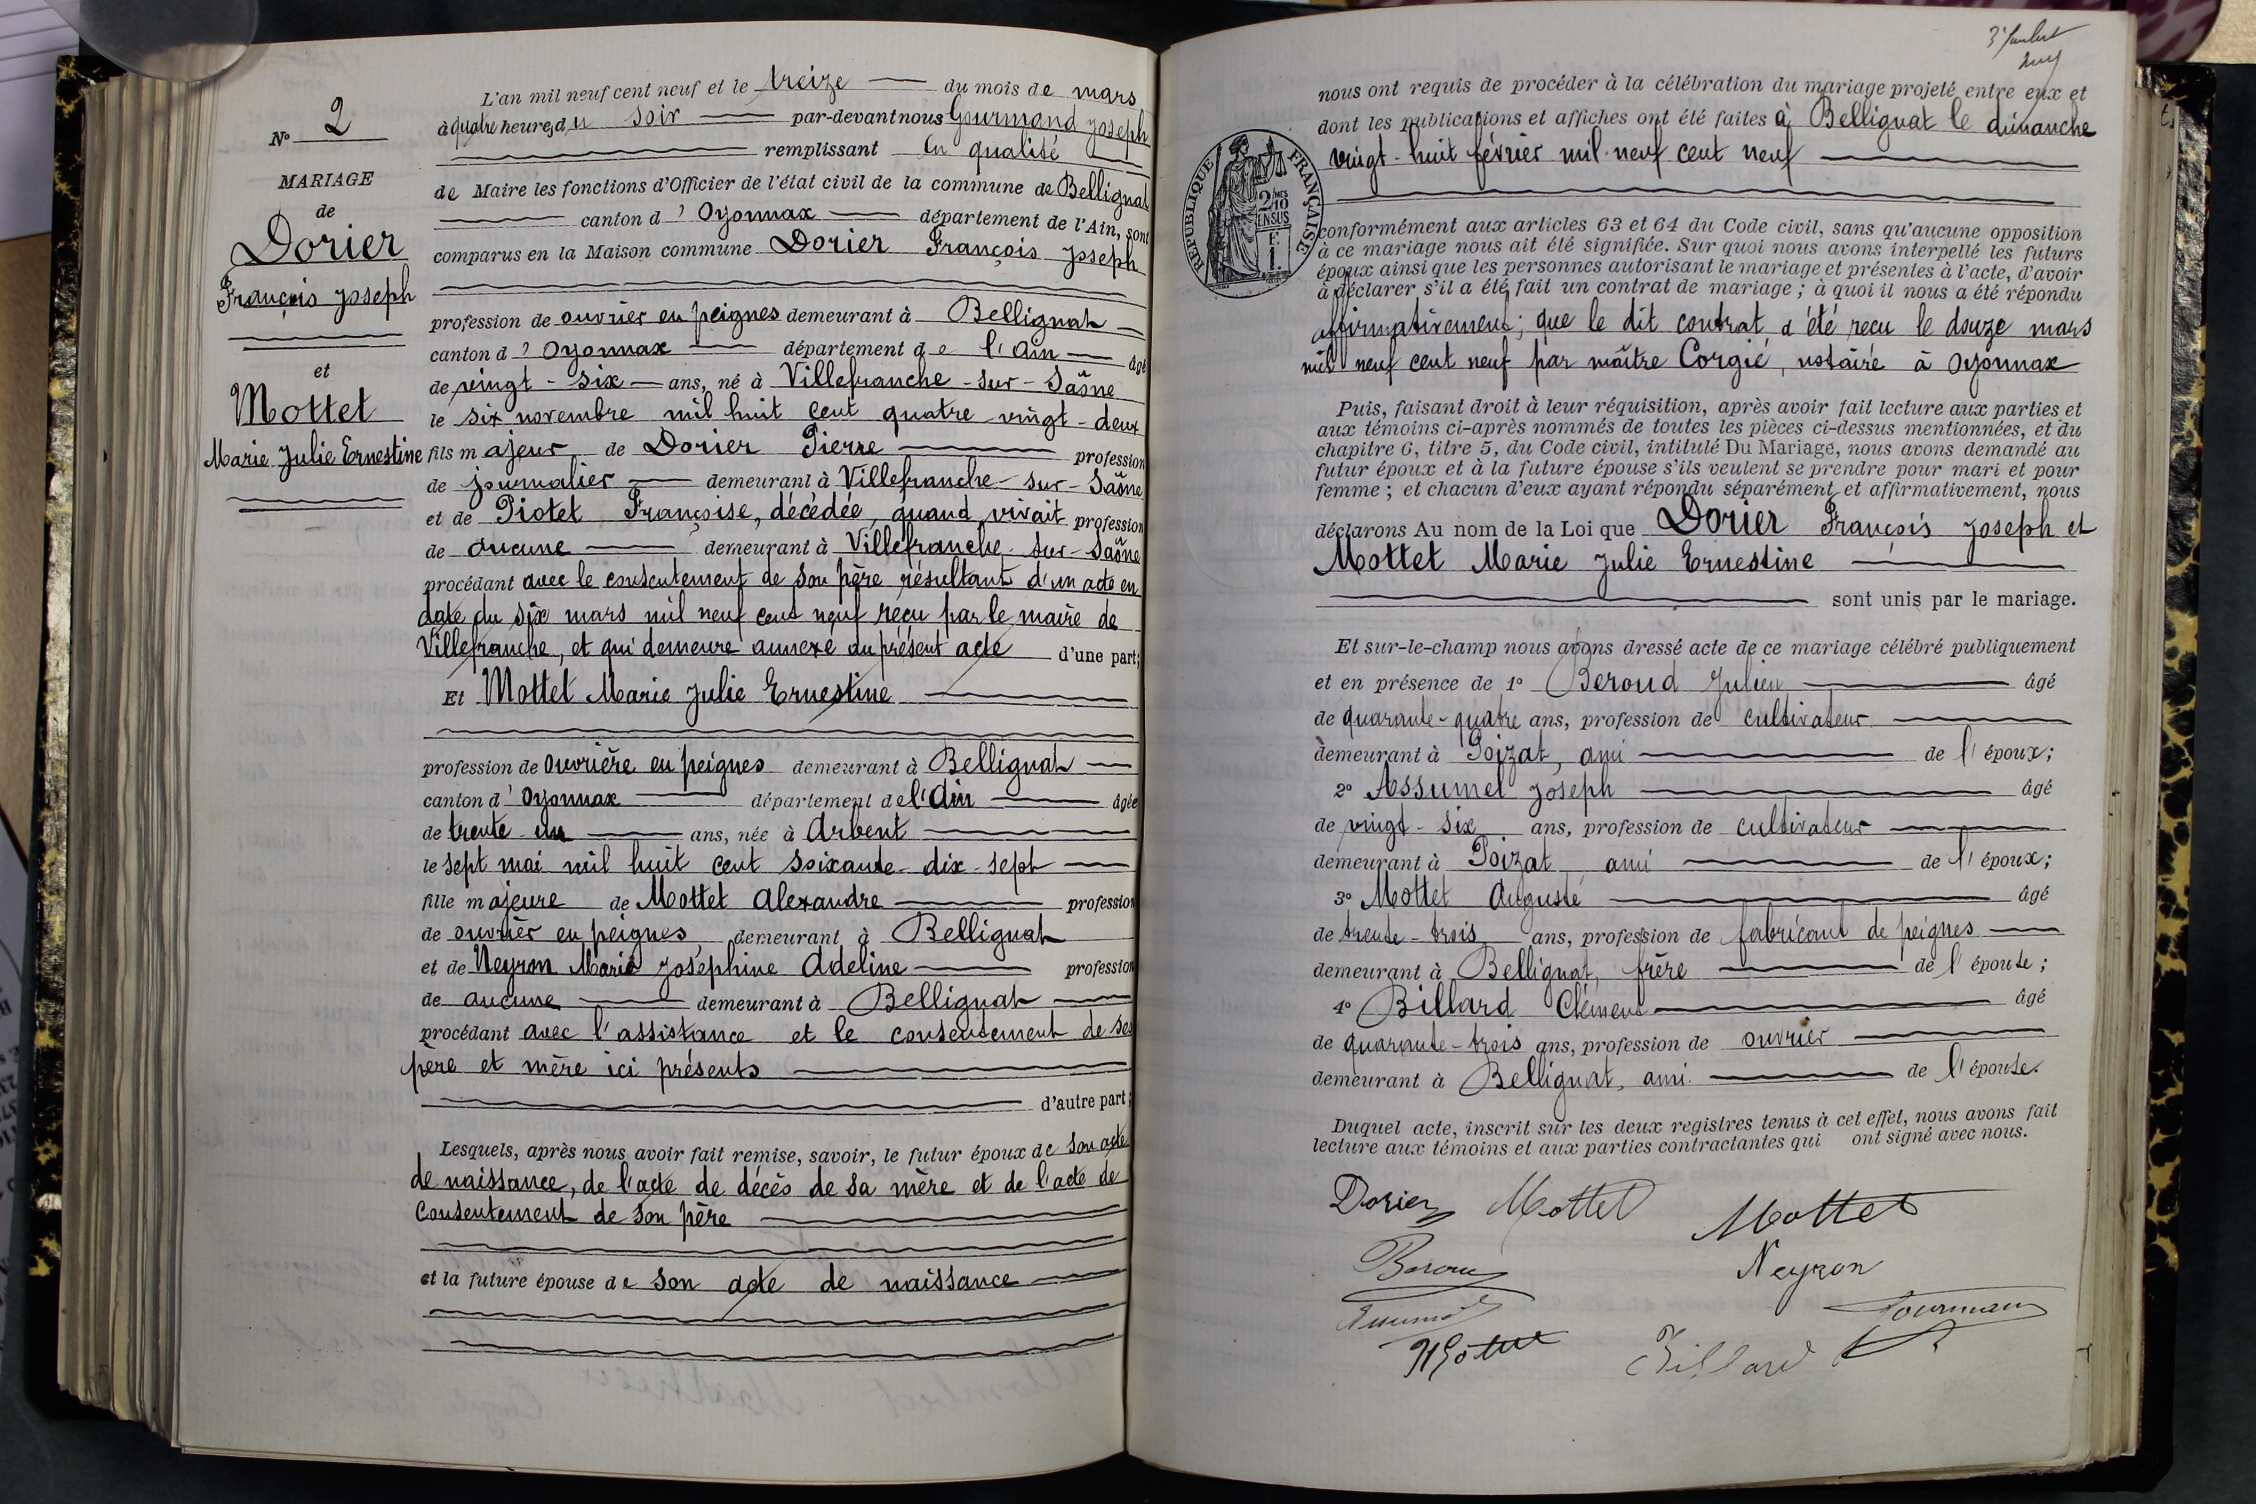 N° 2
MARIAGE
de
Dorier
François Joseph
et
Mottet
Marie Julie Ernestine
L'an mil neuf cent neuf et le treize du mois de mars
à quatre heures du soir par-devant nous Gourmand Joseph
remplissant en qualité
de Maire les fonctions d'Officier de l'état civil de la commune de Bellignat
canton d'Oyonnax département de l'Ain, sont
comparus en la Maison commune Dorier François Joseph
profession de ouvrier en peignes demeurant à Bellignat
canton d'Oyonnax département de l'Ain âgé
de vingt-six ans, né à Villefranche-sur-Saône
le six novembre mil huit cent quatre-vingt-deux
fils majeur de Dorier Pierre profession
de journalier demeurant à Villefranche-sur-Saône
et de Piotet Françoise, décédée, quand vivait profession
de aucune demeurant à Villefranche-sur-Saône
procédant avec le consentement de son père résultant d'un acte en
date du six mars mil neuf cent neuf reçu par le maire de
Villefranche, et qui demeure annexé au présent acte d'une part;
Et Mottet Marie Julie Ernestine
profession de ouvrière en peignes demeurant à Bellignat
canton d'Oyonnax département de l'Ain âgée
de trente-un ans, née à Arbent
le sept mai mil huit cent soixante-dix-sept
fille majeure de Mottet Alexandre profession
de ouvrier en peignes demeurant à Bellignat
et de Neyron Marie Joséphine Adeline profession
de aucune demeurant à Bellignat
procédant avec l'assistance et le consentement de ses
père et mère ici présents
d'autre part;
Lesquels, après nous avoir fait remise, savoir, le futur époux de son acte
de naissance, de l'acte de décès de sa mère et de l'acte de
consentement de son père
et la future épouse de son acte de naissance
nous ont requis de procéder à la célébration du mariage projeté entre eux et
dont les publications et affiches ont été faites à Bellignat le dimanche
vingt-huit février mil-neuf cent neuf
RÉPUBLIQUE FRANÇAISE
2/10 EN SUS
conformément aux articles 63 et 64 du Code civil, sans qu'aucune opposition
à ce mariage nous ait été signifiée. Sur quoi nous avons interpellé les futurs
époux ainsi que les personnes autorisant le mariage et présentes à l'acte, d'avoir
à déclarer s'il a été fait un contrat de mariage; à quoi il nous a été répondu
affirmativement; que le dit contrat a été reçu le douze mars
mil neuf cent neuf par maître Corgié, notaire à Oyonnax
Puis, faisant droit à leur réquisition, après avoir fait lecture aux parties et
aux témoins ci-après nommés de toutes les pièces ci-dessus mentionnées, et du
chapitre 6, titre 5, du Code civil, intitulé Du Mariage, nous avons demandé au
futur époux et à la future épouse s'ils veulent se prendre pour mari et pour
femme; et chacun d'eux ayant répondu séparément et affirmativement, nous
déclarons Au nom de la Loi que Dorier François Joseph et
Mottet Marie Julie Ernestine
sont unis par le mariage.
Et sur-le-champ nous avons dressé acte de ce mariage célébré publiquement
et en présence de 1° Beroud Julien âgé
de quarante-quatre ans, profession de cultivateur
demeurant à Poizat, ami de l'époux;
2° Assumel Joseph âgé
de vingt-six ans, profession de cultivateur
demeurant à Poizat, ami de l'époux;
3° Mottet Auguste âgé
de trente-trois ans, profession de fabricant de peignes
demeurant à Bellignat, frère de l'épouse;
4° Billard Clément âgé
de quarante-trois ans, profession de ouvrier
demeurant à Bellignat, ami de l'épouse.
Duquel acte, inscrit sur les deux registres tenus à cet effet, nous avons fait
lecture aux témoins et aux parties contractantes qui ont signé avec nous.
Dorier Mottet Mottet
Neyron
Gourmand
Billard